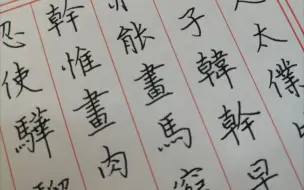 太僕
子韓幹早
能畫馬窮
幹惟畫肉
忍使驊